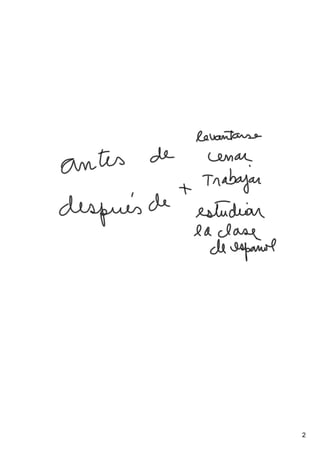 levantarse
antes de cenar
+ Trabajar
después de estudiar
la clase
de español
2